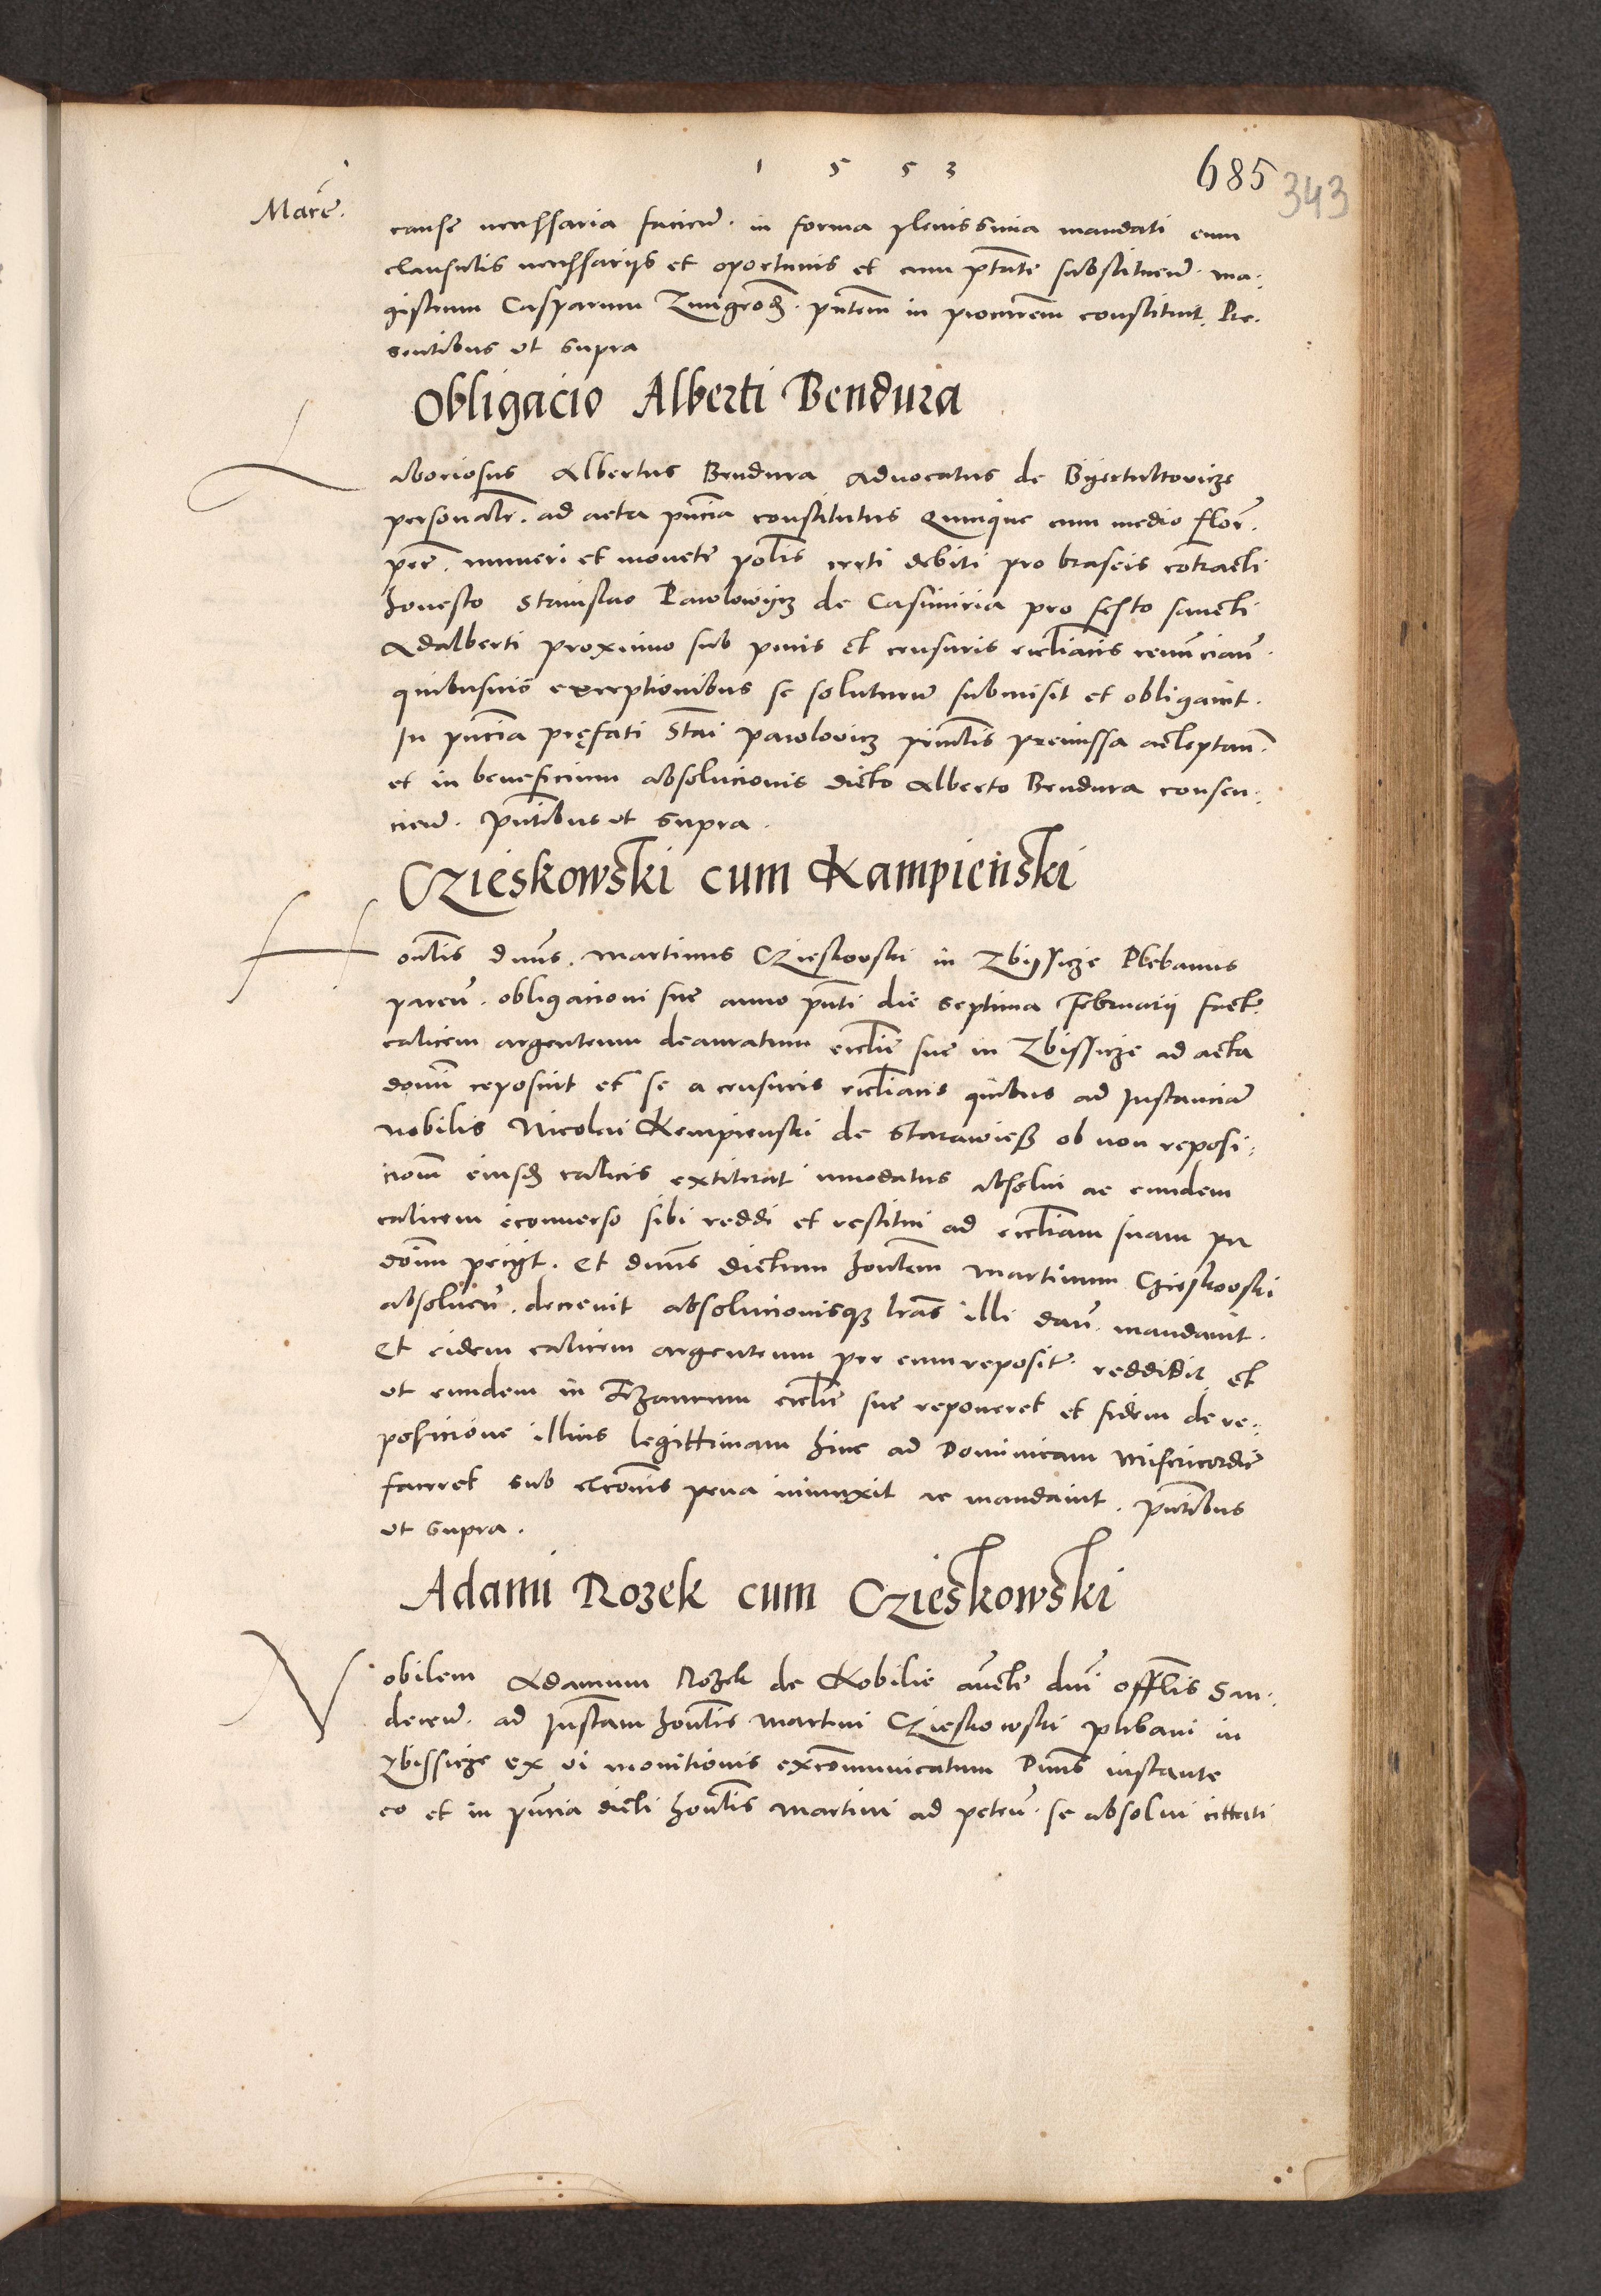 1 5 5 3
685
343
Marcē.
cause necessaria faciend̄. in forma plenissima mandati cum
clausulis necessariis et oportunis et cum ptāte substituend̄. ma:
gistrum Casparum Zmigrod̄. pn̄tem in procurēm constituit. Pre.
sentibus ut supra
Obligacio Alberti Bendura
Laboriosus Albertus Bendura Advocatus de Byertultowicze
personalr̄. ad acta pn̄cia constitutus Quinque cum medio flor̄.
pec̄. numeri et monete polīs certi debiti pro braseis cōtracti
honesto Stanislao Pawlowycz de Casimiria pro festo sancti
Adalberti proximo sub penis et censuris eccliācis renunciān̄.
quibusuis exceptionibus se soluturum submisit et obligauit.
In pn̄cia pręfati Stāi pawlowicz prīncīlis premissa acceptan̄.
et in beneficium absolucionis dicto Alberto Bendura consen:
cien̄. pn̄tibus ut supra.
Czieskowski cum Kampienski
Honlīs dn̄us. Martinus Czieskowski in Zbyssicze Plebanus
paren̄. obligacioni sue anno pn̄ti die septima Februarij fact̄.
calicem argenteum deauratum ecclīe sue in Zbissicze ad acta
domī reposuit et se a censuris eccliācis quibus ad Instanciam
nobilis Nicolai Kempienski de Starawiess ob non reposi:
cionem eiusd̄ calicis extiterat innodatus absolui ac eundem
calicem econuerso sibi reddi et restitui ad ecclīam suam per
dōm̄ pecijt. Et dn̄us dictum honlēm Martinum Czieskowski
absoluen̄. decreuit absolucionisq; lrās illi dan̄. mandauit.
Et eidem calicem argenteum per eum reposit̄. reddidit et
ut eundem in Tezaurum ecclīe sue reponeret et fidem de re:
posicione illius legittimam hinc ad Dominicam Misericordie
faceret sub excōīs pena iniunxit ac mandauit. pn̄tibus
ut supra.
Adami Rozek cum Czieskowski
Nobilem Adamum Rozek de Kobilie aūcte dn̄i Offlīs San:
decen̄. ad Instām honlīs Martini Czieskowski plebani in
Zbissicze ex vi monitionis excōmunicatum Dn̄us instante
eo et in pn̄cia dicti honlīs Martini ad petēn̄. se absolui cittati